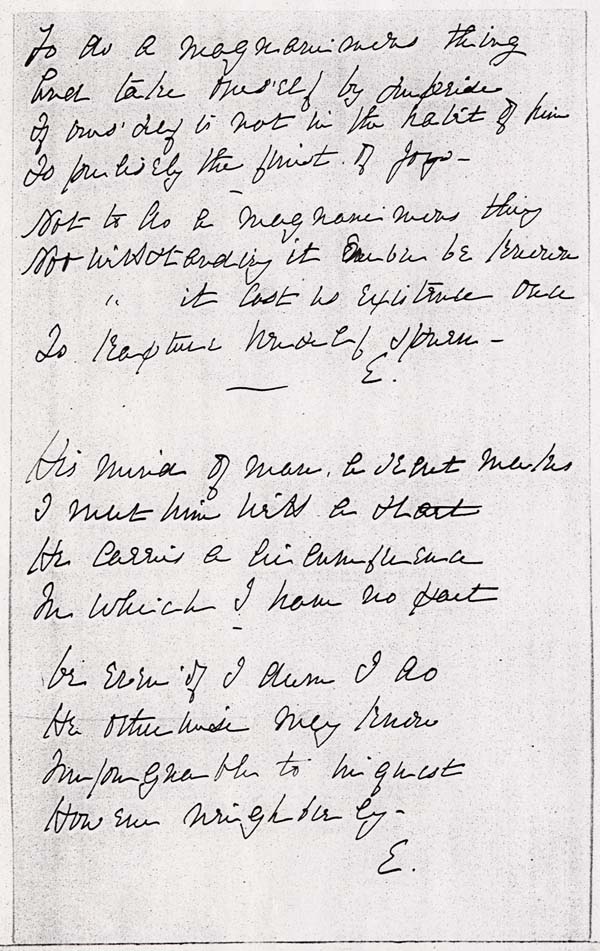 To do a magnanimous thing
And take oneself by surprise
If oneself is not in the habit of him
Is precisely the finest of Joys -
Not to do a magnanimous thing
Notwithstanding it never be known
" it cost us existence once
Is Rapture herself spurn -
E.
His mind of man, a secret makes
I meet him with a start
He carries a circumference
In which I have no part
Or even if I deem I do
He otherwise may know
Impregnable to inquest
However neighborly -
E.